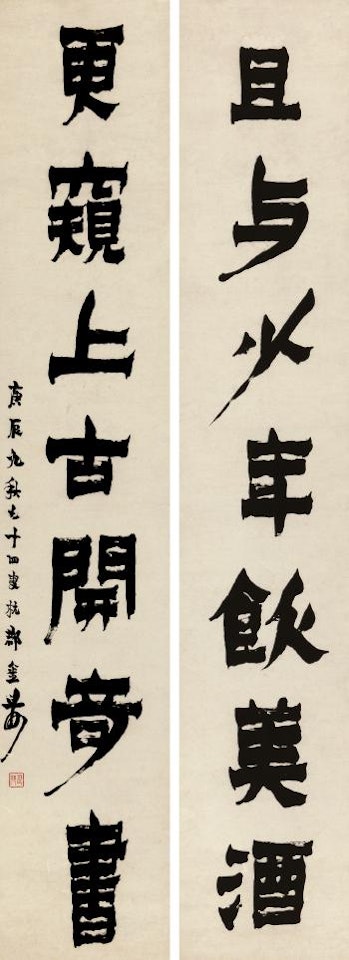 且与少年飲美酒
更窺上古開竒書
庚辰九秋七十四叟杭郡金農